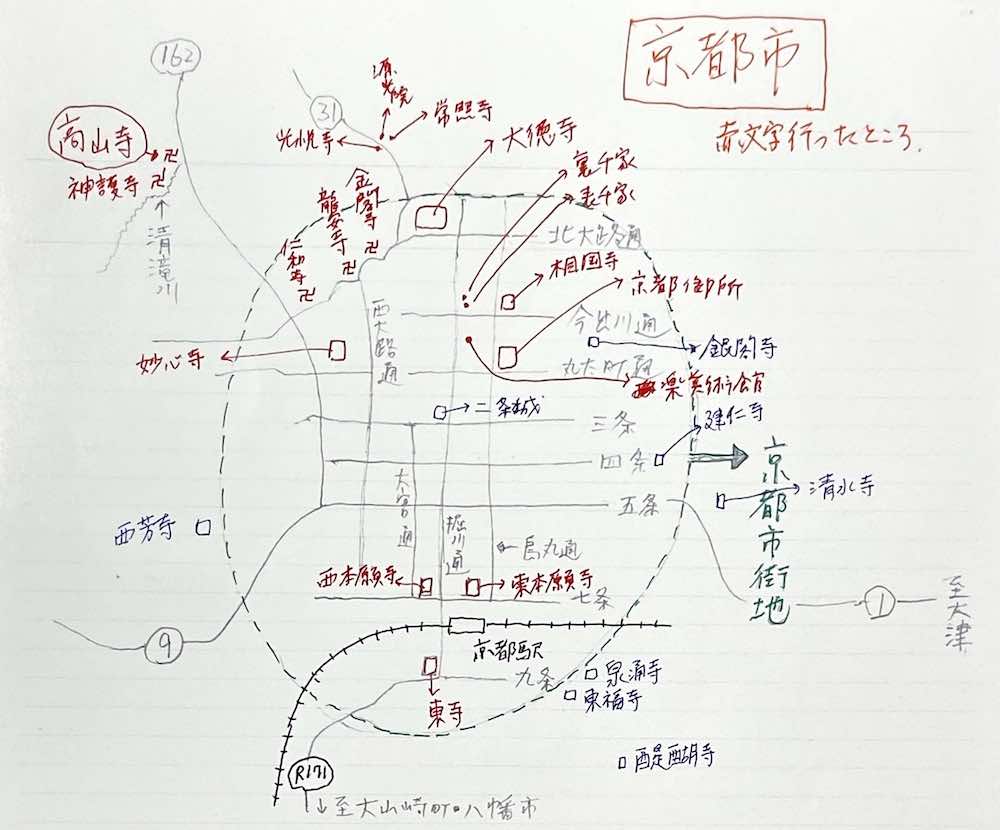 京都市
赤文字行ったところ.
162
31
源光院
常照寺
光悦寺
大徳寺
高山寺
神護寺
↑清滝川
金閣寺
龍安寺
仁和寺
裏千家
表千家
北大路通
相国寺
京都御所
今出川通
西大路通
銀閣寺
妙心寺
丸太町通
楽美術館
二条城
三条
建仁寺
四条
京都市街地
清水寺
五条
大宮通
堀川通
烏丸通
西芳寺
西本願寺
東本願寺
七条
1
至大津
9
京都駅
九条
泉涌寺
東福寺
東寺
醍醐寺
R171
↓至大山崎町・八幡市